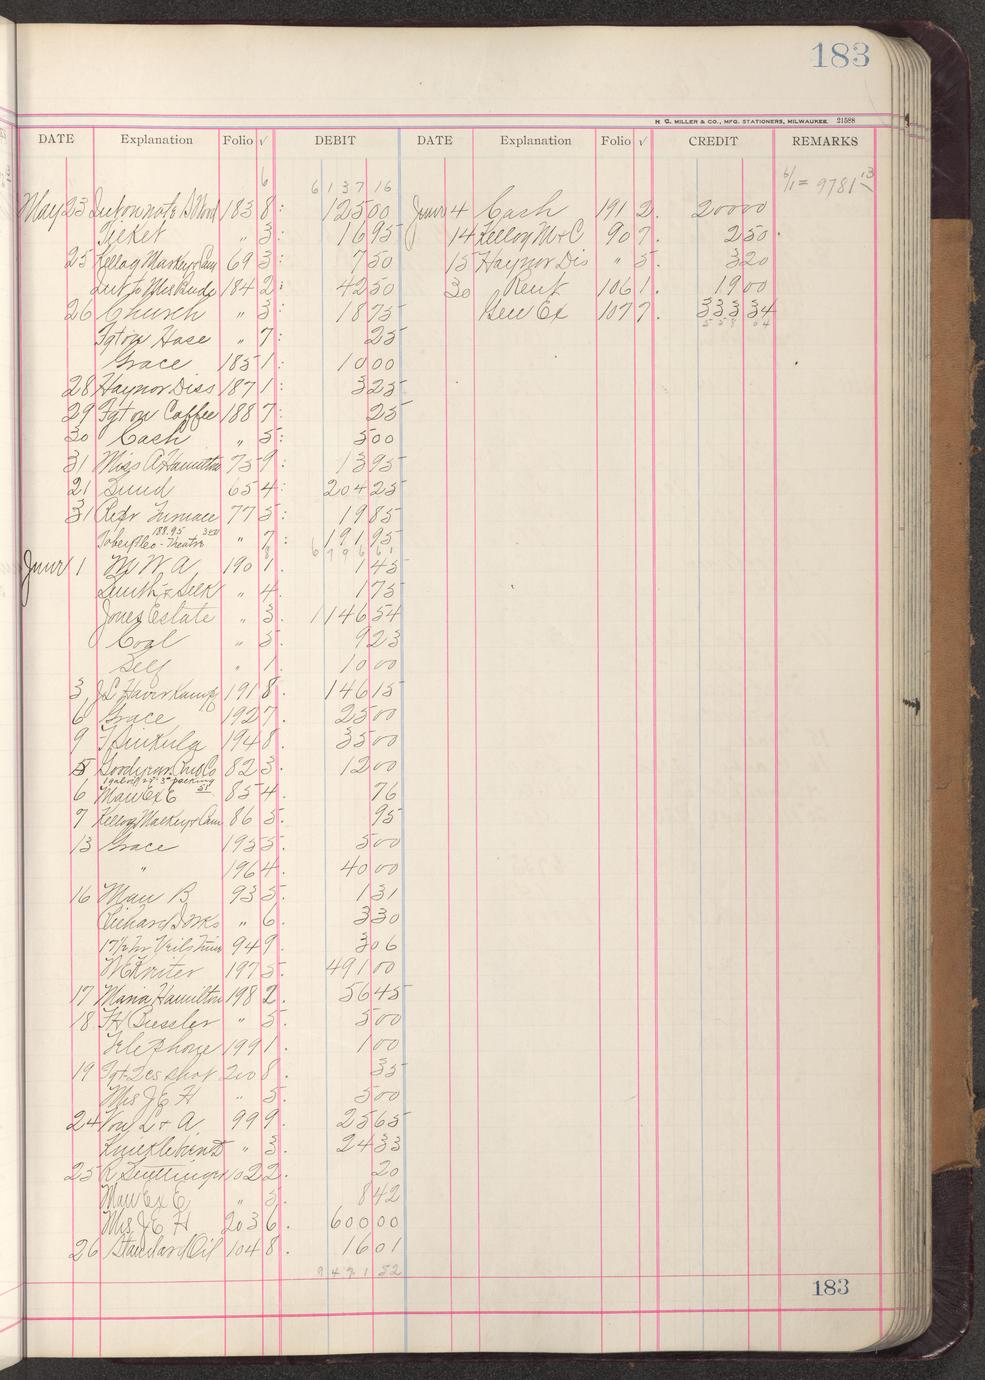 183
H. G. MILLER & CO., MFG. STATIONERS, MILWAUKEE. 21588
DATE Explanation Folio √ DEBIT DATE Explanation Folio √ CREDIT REMARKS
6 6137 16 6/1 = 9781 13
May 23 Int on note 183 8: 125 00 June 4 Cash 191 2. 200 00
Ticket " 3: 16 95 14 Kellog M & C 90 7. 2 50
25 Kellog Mackey & Cam 69 3: 7 50 15 Haynor Dis " 5. 3 20
Int to Mrs 184 2: 42 50 30 Rent 106 1. 19 00
26 Church " 3: 18 75 Gen Ex 107 7. 333 34
558 04
Fgt on Hose " 7: 25
Grace 185 1: 10 00
28 Haynor Diss 187 1: 3 25
29 Fgt on Coffee 188 7: 25
30 Cash " 5: 5 00
31 Miss A Hamilton 75 9: 13 95
21 Sund 65 4: 204 25
31 Repr Furnace 77 5: 19 85
188.95 Theatre 3.00 " 7: 191 95
8 6796 61
June 1 M W A 190 1. 1 45
& Silk " 4. 1 75
Jones Estate " 3. 1146 54
Coal " 5. 9 23
Self " 1. 10 00
3 J L Haverkamp 191 8. 146 15
6 Grace 192 7. 25 00
9 F Sinkula 194 8. 35 00
5 Goodyear Rub Co 82 3. 12 00
packing
6 Man Ex E 51 85 4. 76
7 Kellog Mackey & Cam 86 5. 95
13 Grace 195 5. 5 00
" 196 4. 40 00
16 Man B 93 5. 1 31
Richard " 6. 3 30
17½ hr 94 9. 3 06
W E Kriter 197 5. 491 00
17 Maria Hamilton 198 2. 56 45
18 F H Bressler " 5. 5 00
Telephone 199 1. 1 00
19 Fgt 2 cs shot 200 8. 35
Mrs J E H " 5. 5 00
24 Von L & A 99 9. 25 65
" 3. 24 33
25 R 102 2. 20
Man Ex E " 5. 8 42
Mrs J E H 203 6. 600 00
26 Standard Oil 104 8. 16 01
9491 52
183